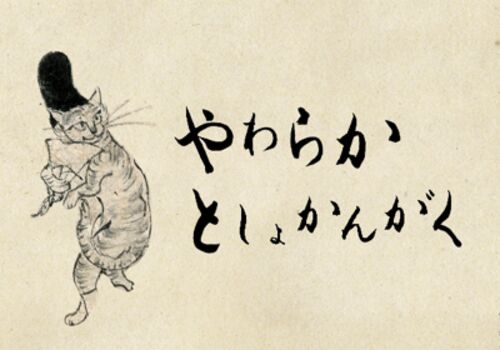 やわらか
としょかんがく